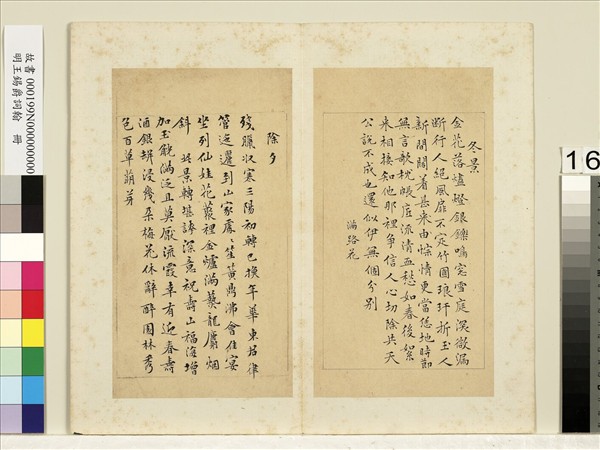 冬景
金花落燼燈銀鑠鳴窓雪庭深欲漏
斷行人絕風扉不定竹圃琅玕折玉人
新間闊着甚來由悰情更當恁地時節
無言攲枕帳底流清血愁如春後絮
來相接知他那裡爭信人心切除共天
公說不成也還似伊無個分別
滿路花
除夕
殘臘收寒三陽初轉已換年華東君律
管迤邐到山家處〻笙簧鼎沸會佳宴
坐列仙娃花叢裡金爐滿爇龍麝烟
斜 此景轉堪誇深意祝壽山福海增
加玉觥滿泛且莫厭流霞幸有迎春壽
酒銀缾浸幾朵梅花休辭醉園林秀
色百草萌芽
故書 000199N000000000
明王錫爵詞翰 冊
16